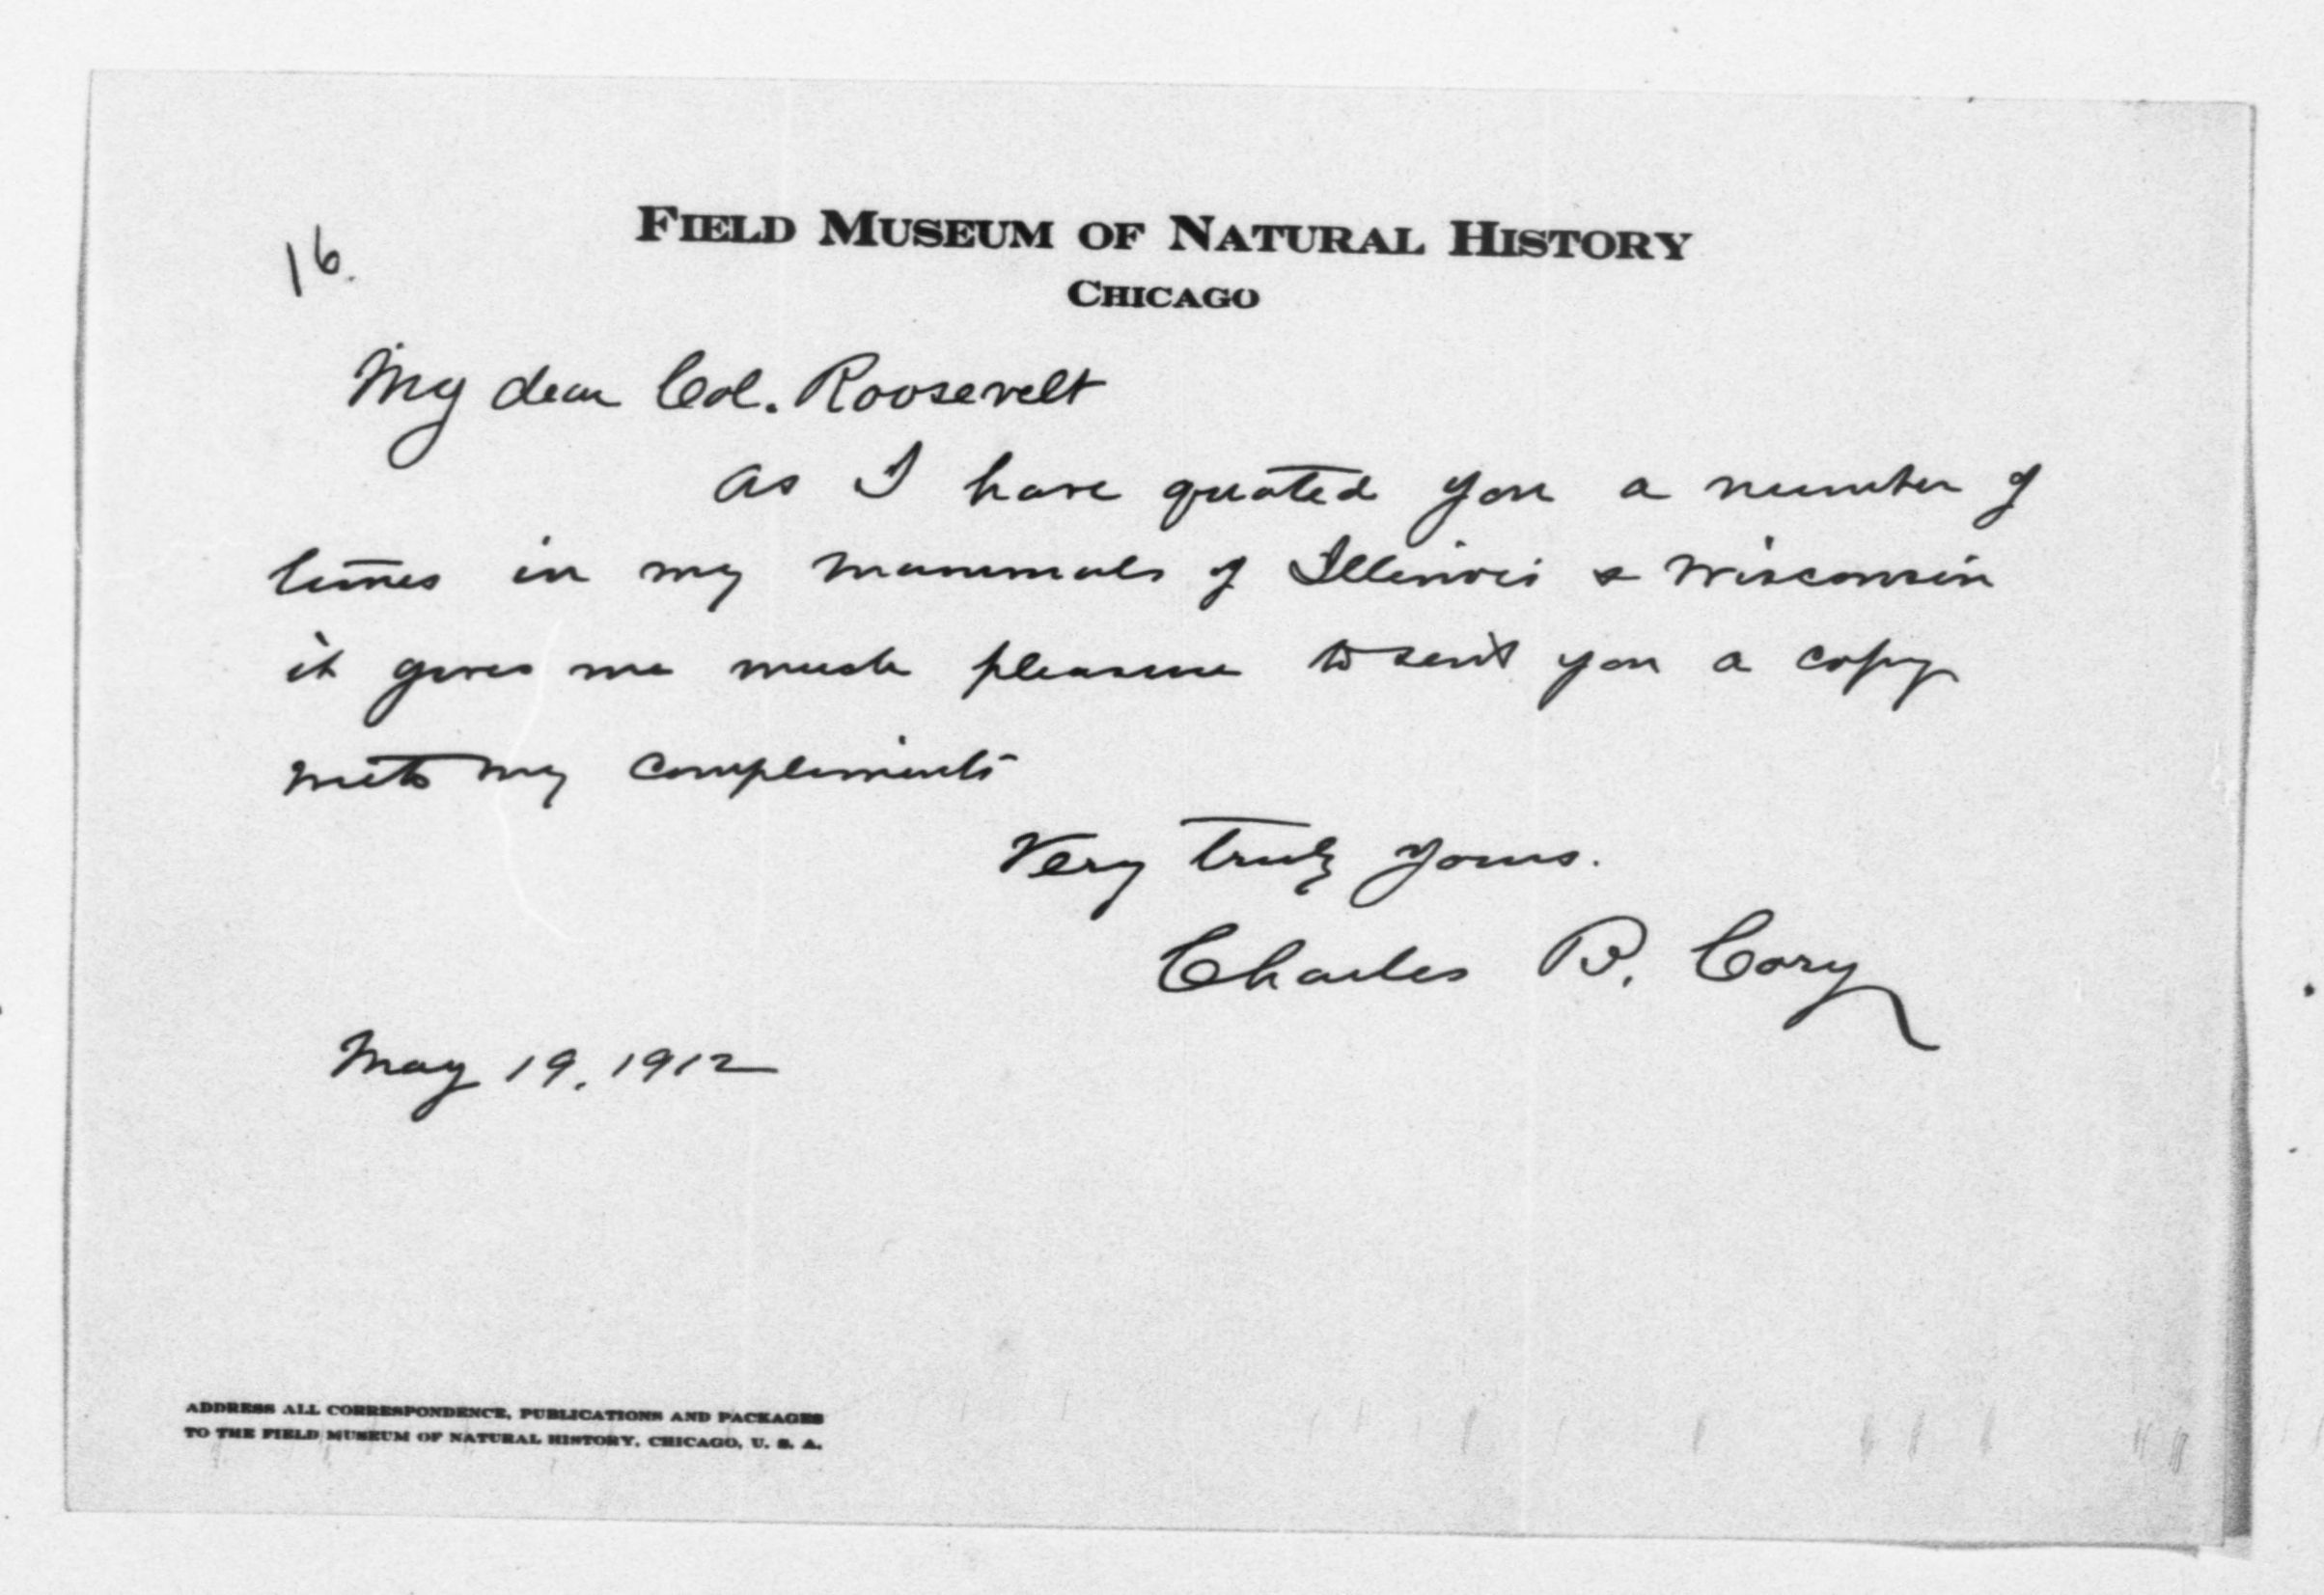 16.
FIELD MUSEUM OF NATURAL HISTORY
CHICAGO
My dear Col. Roosevelt
As I have quoted you a number of
times in my mammals of Illinois & Wisconsin
it gives me much pleasure to send you a copy
with my compliments
Very truly yours.
Charles B. Cory
May 19, 1912
ADDRESS ALL CORRESPONDENCE, PUBLICATIONS AND PACKAGES
TO THE FIELD MUSEUM OF NATURAL HISTORY, CHICAGO, U. S. A.